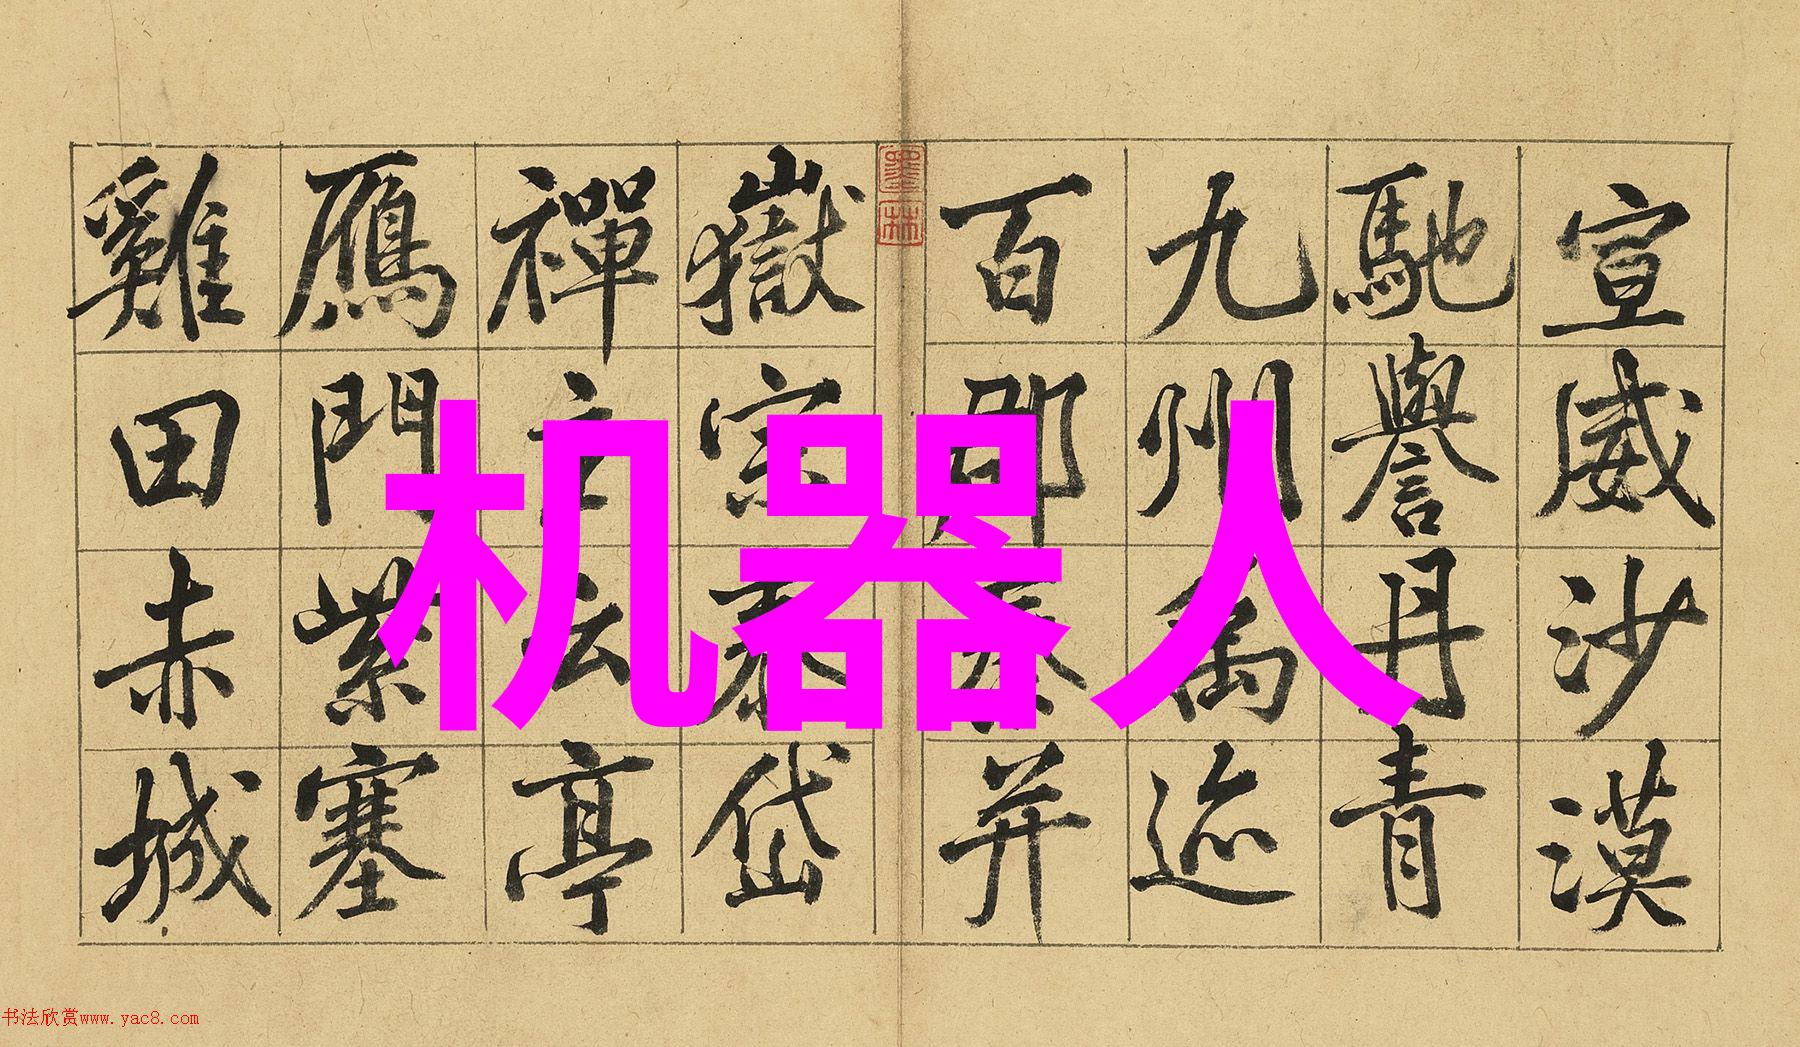 宣威沙漠
馳譽丹青
九州禹迹
百郡秦并
嶽宗泰岱
禪主云亭
鴈門紫塞
雞田赤城
墨林
机器人
书法欣赏www.yac8.com